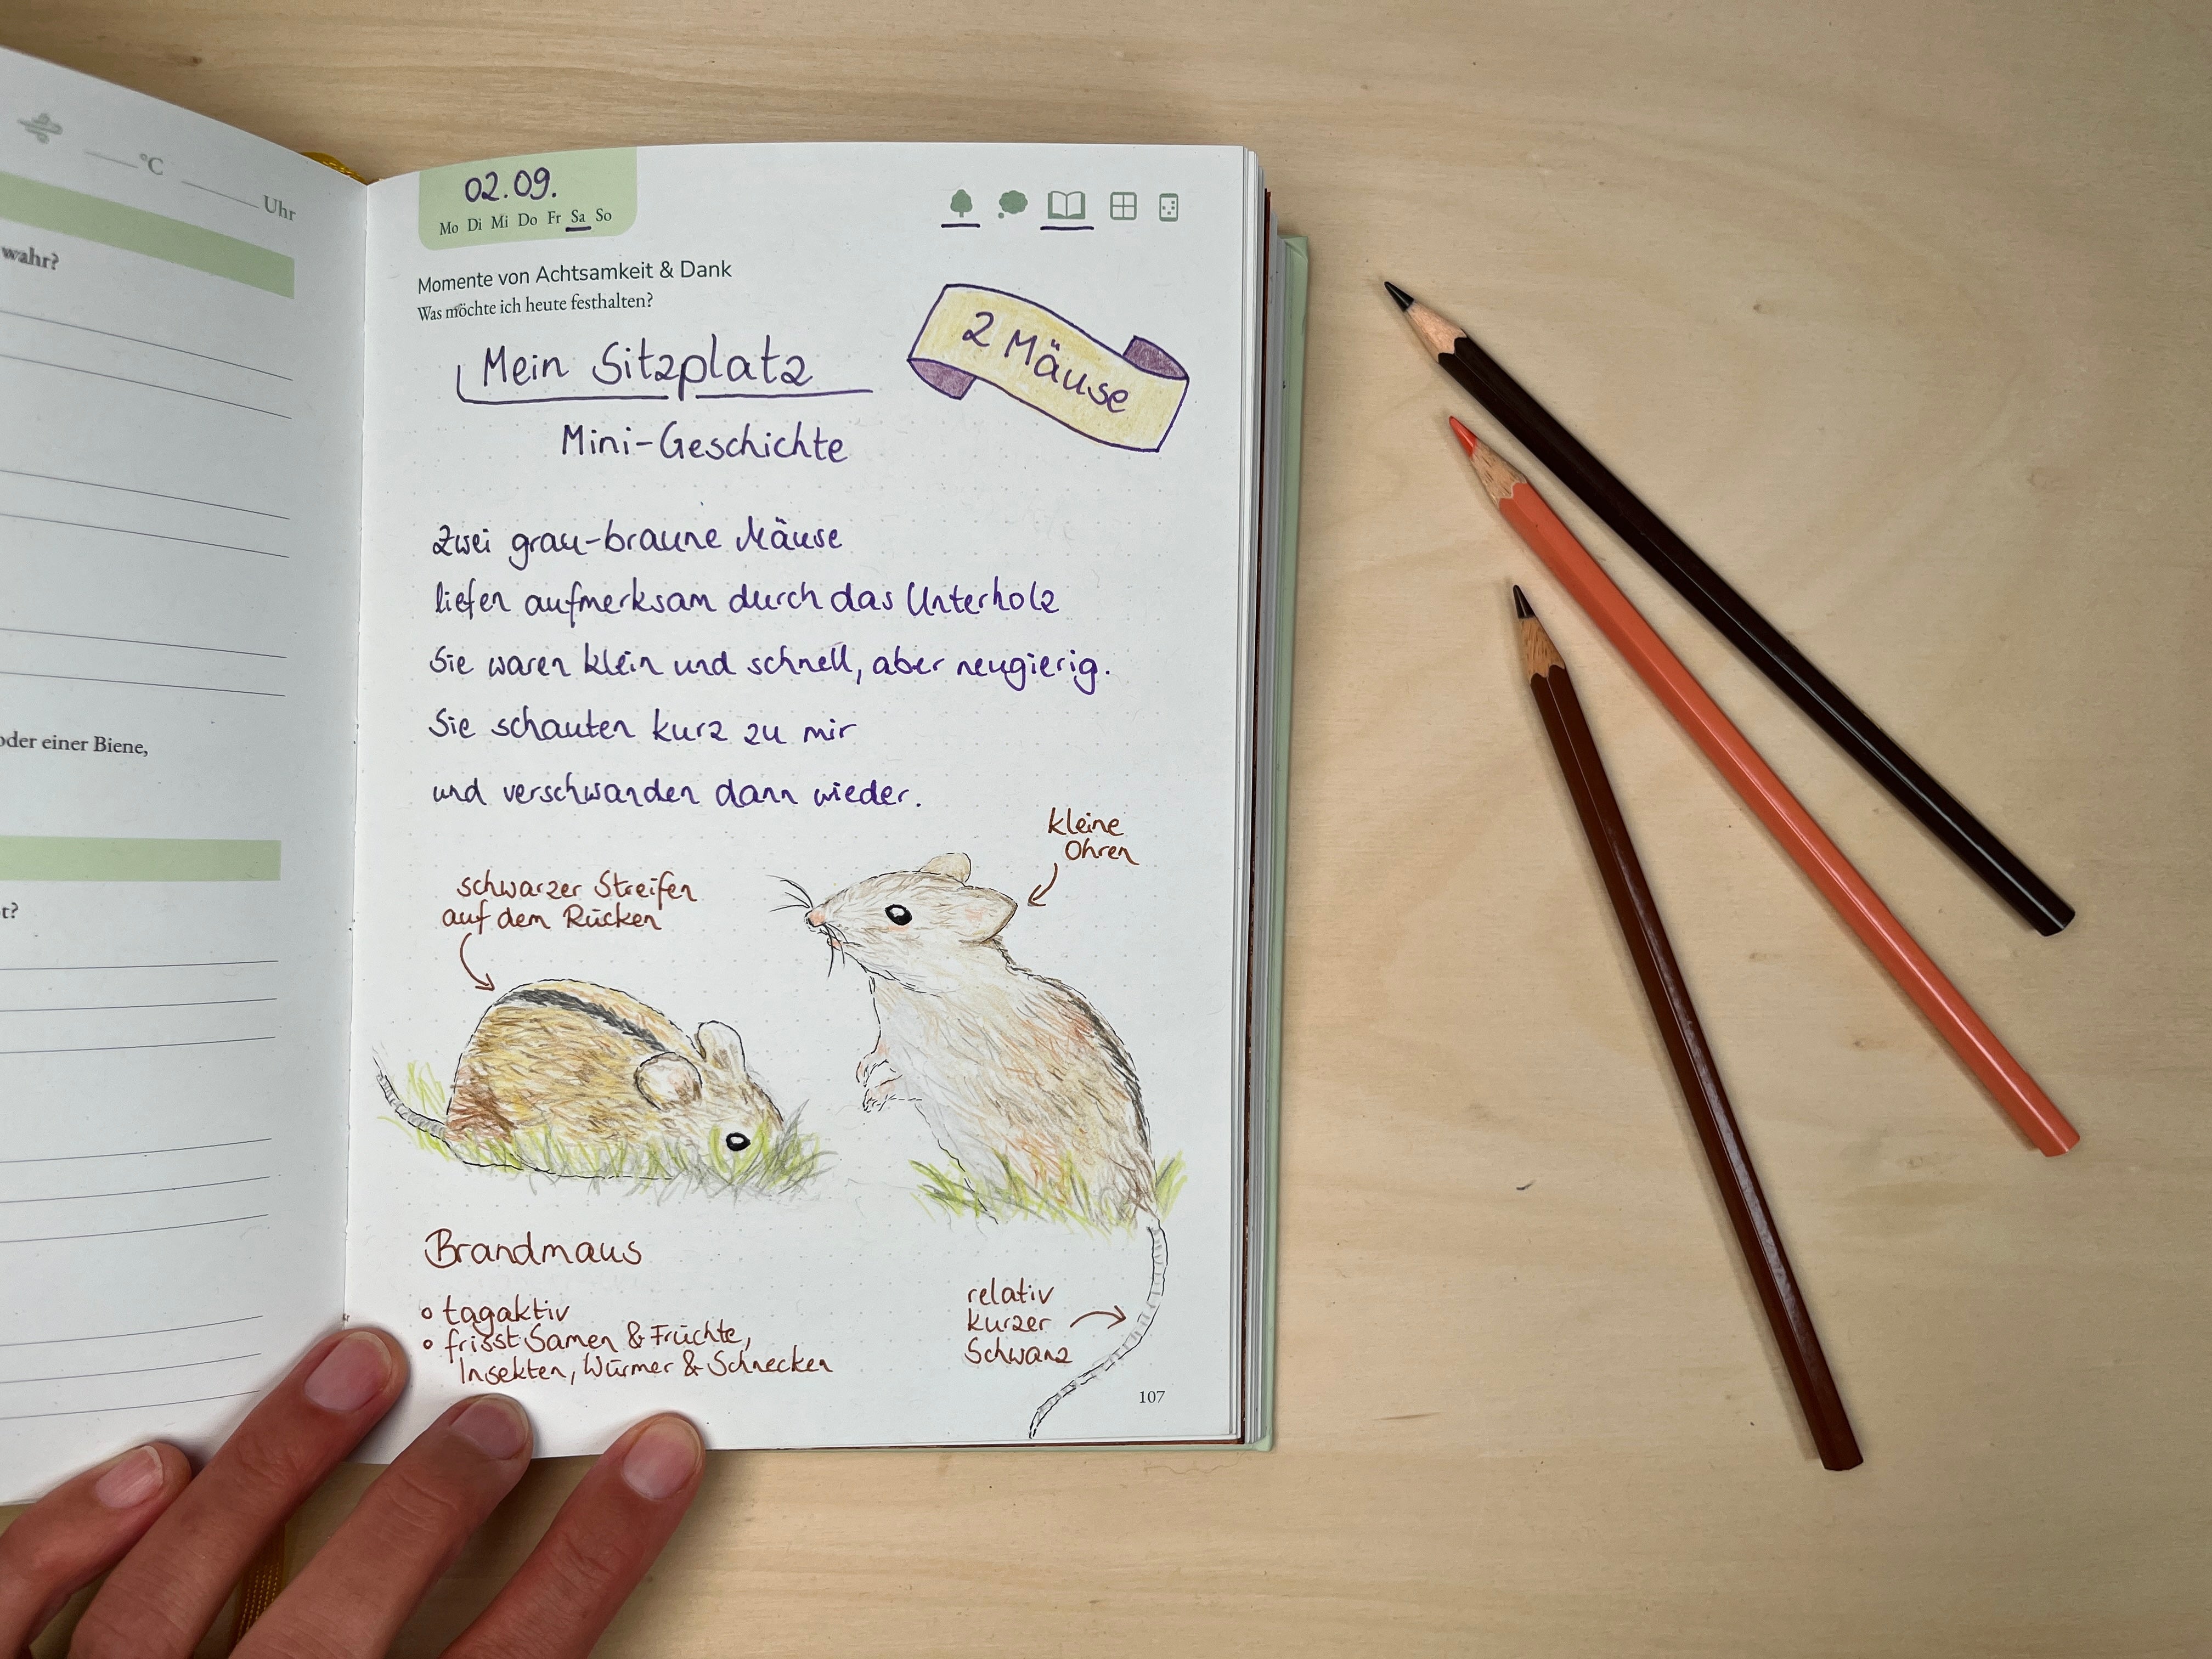 °C
Uhr
wahr?
oder einer Biene,
t?
02.09.
Mo Di Mi Do Fr Sa So
Momente von Achtsamkeit & Dank
Was möchte ich heute festhalten?
Mein Sitzplatz
2 Mäuse
Mini-Geschichte
Zwei grau-braune Mäuse
liefen aufmerksam durch das Unterholz
Sie waren klein und schnell, aber neugierig.
Sie schauten kurz zu mir
und verschwanden dann wieder.
kleine
Ohren
schwarzer Streifen
auf dem Rücken
Brandmaus
o tagaktiv
o frisst Samen & Früchte,
Insekten, Würmer & Schnecken
relativ
kurzer
Schwanz
107